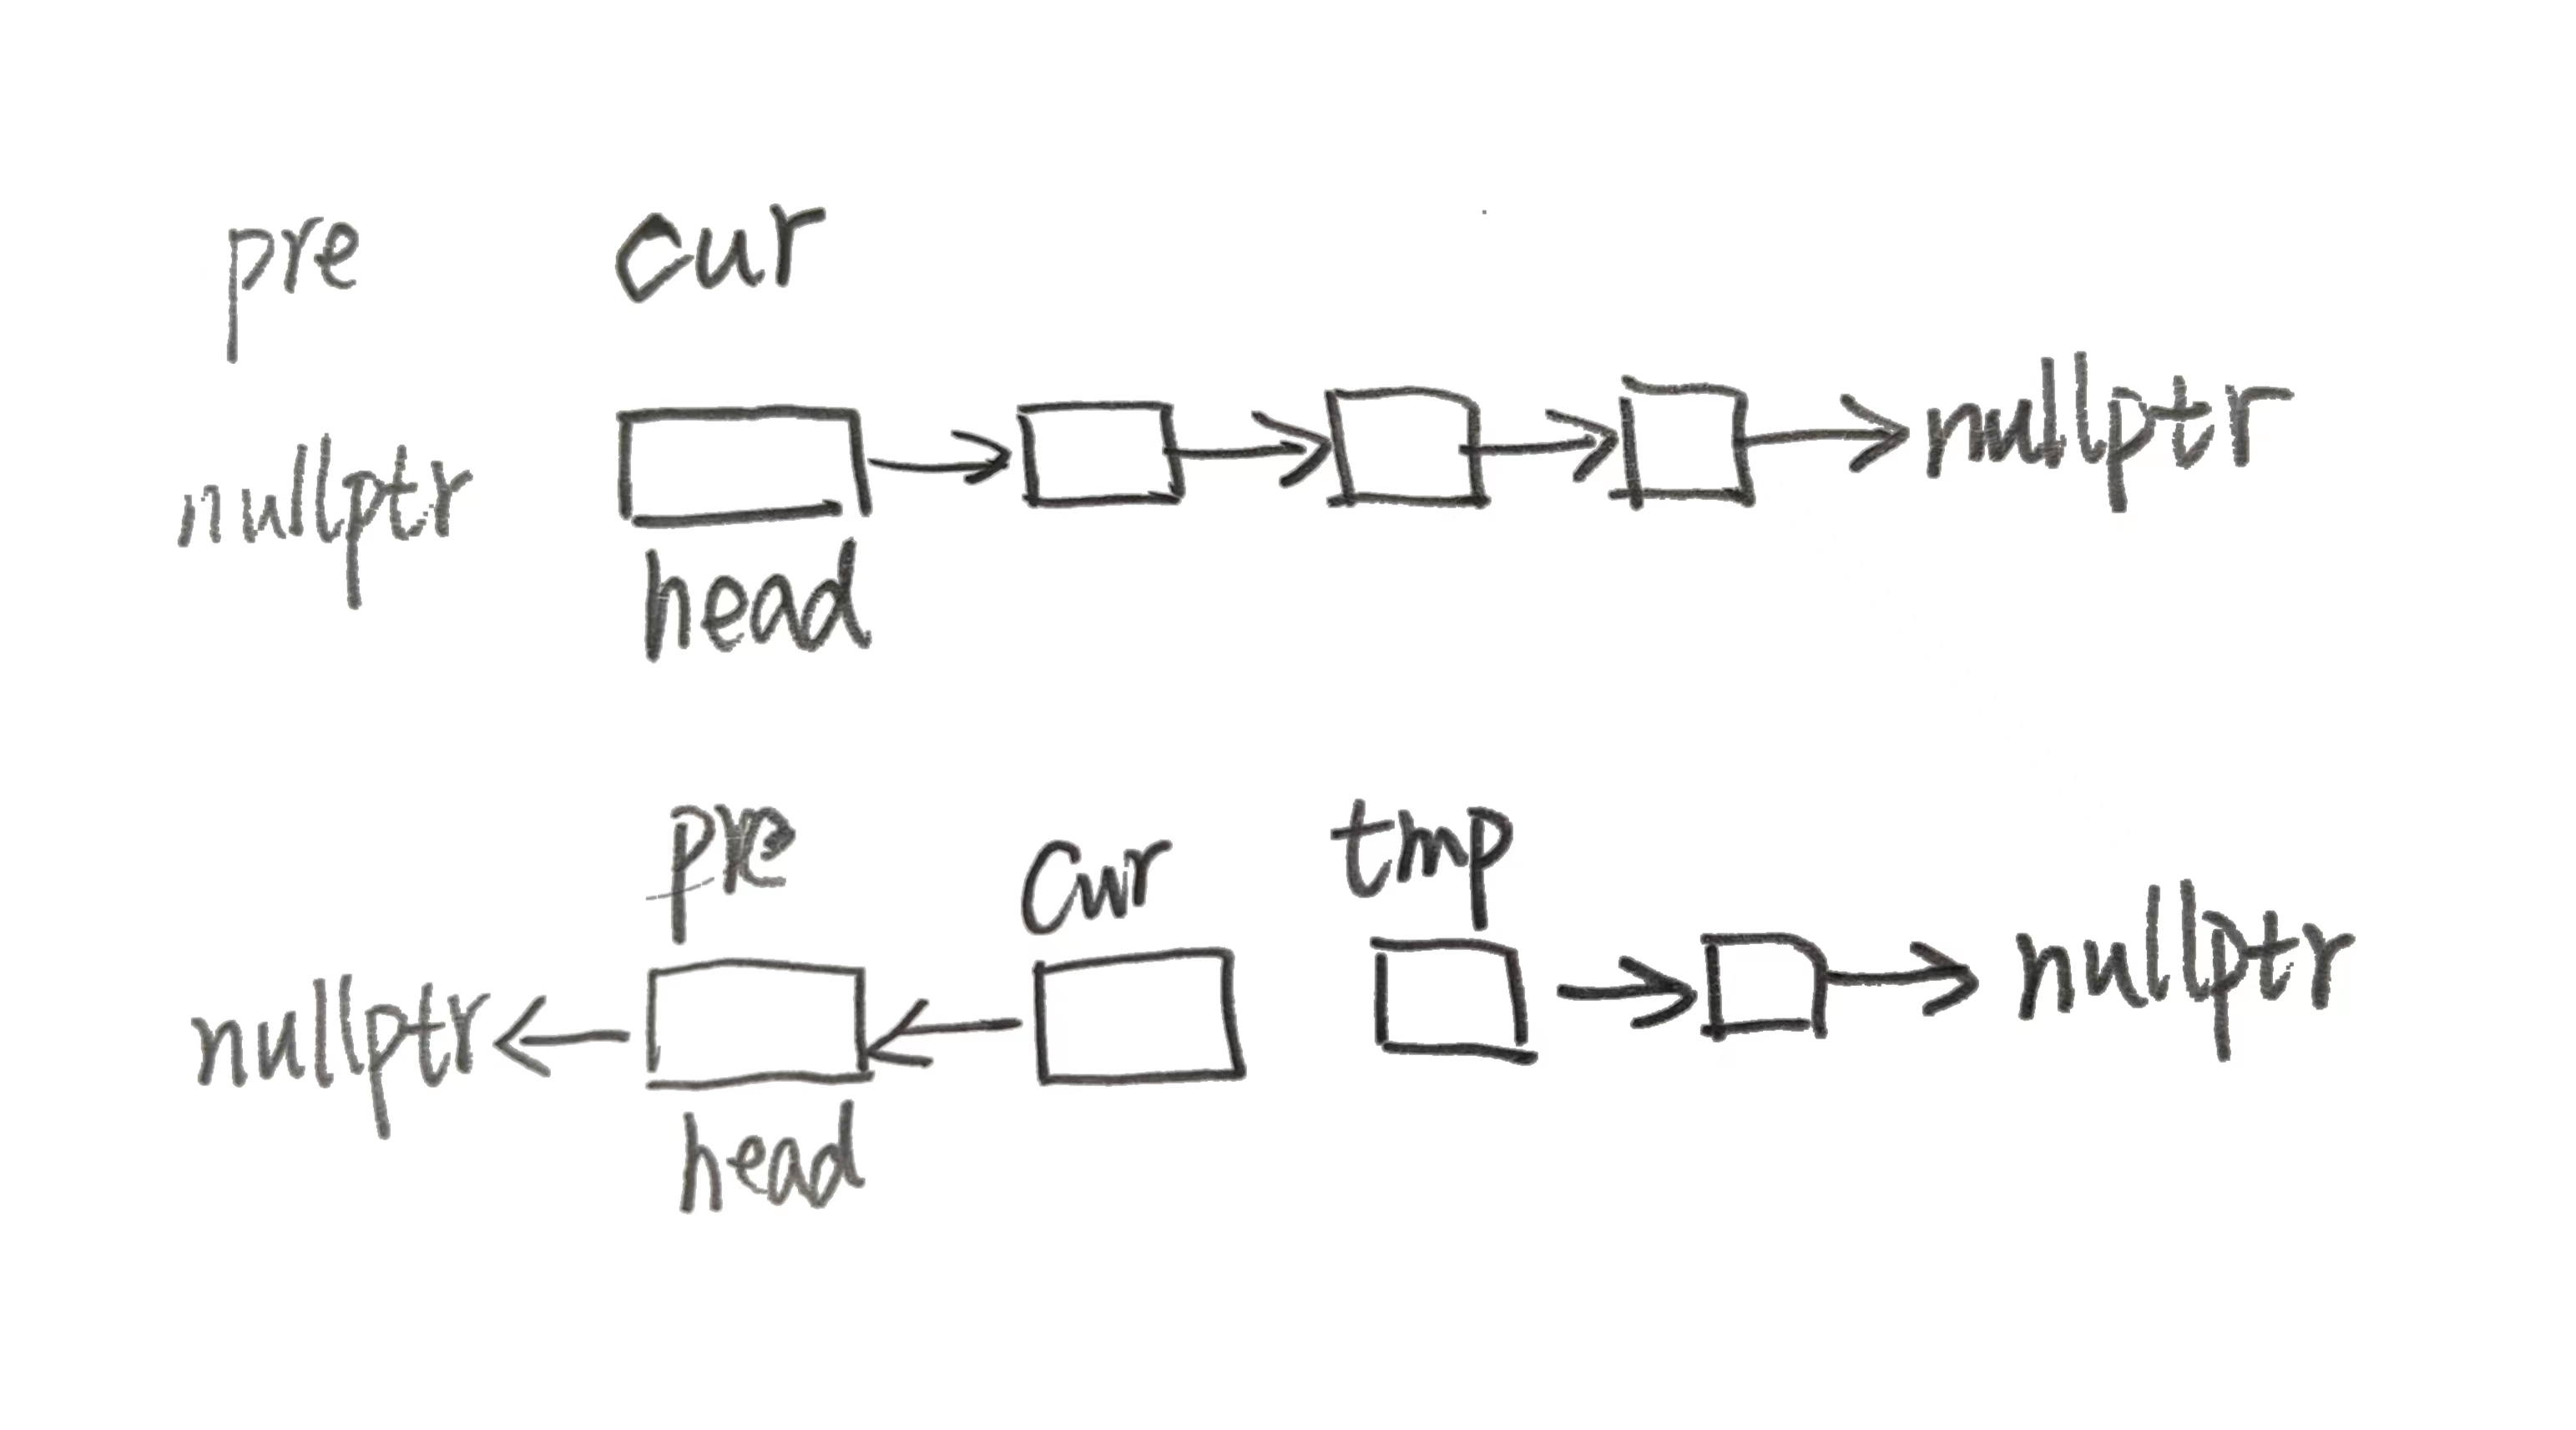 pre cur
nullptr nullptr
head
pre cur tmp
nullptr nullptr
head